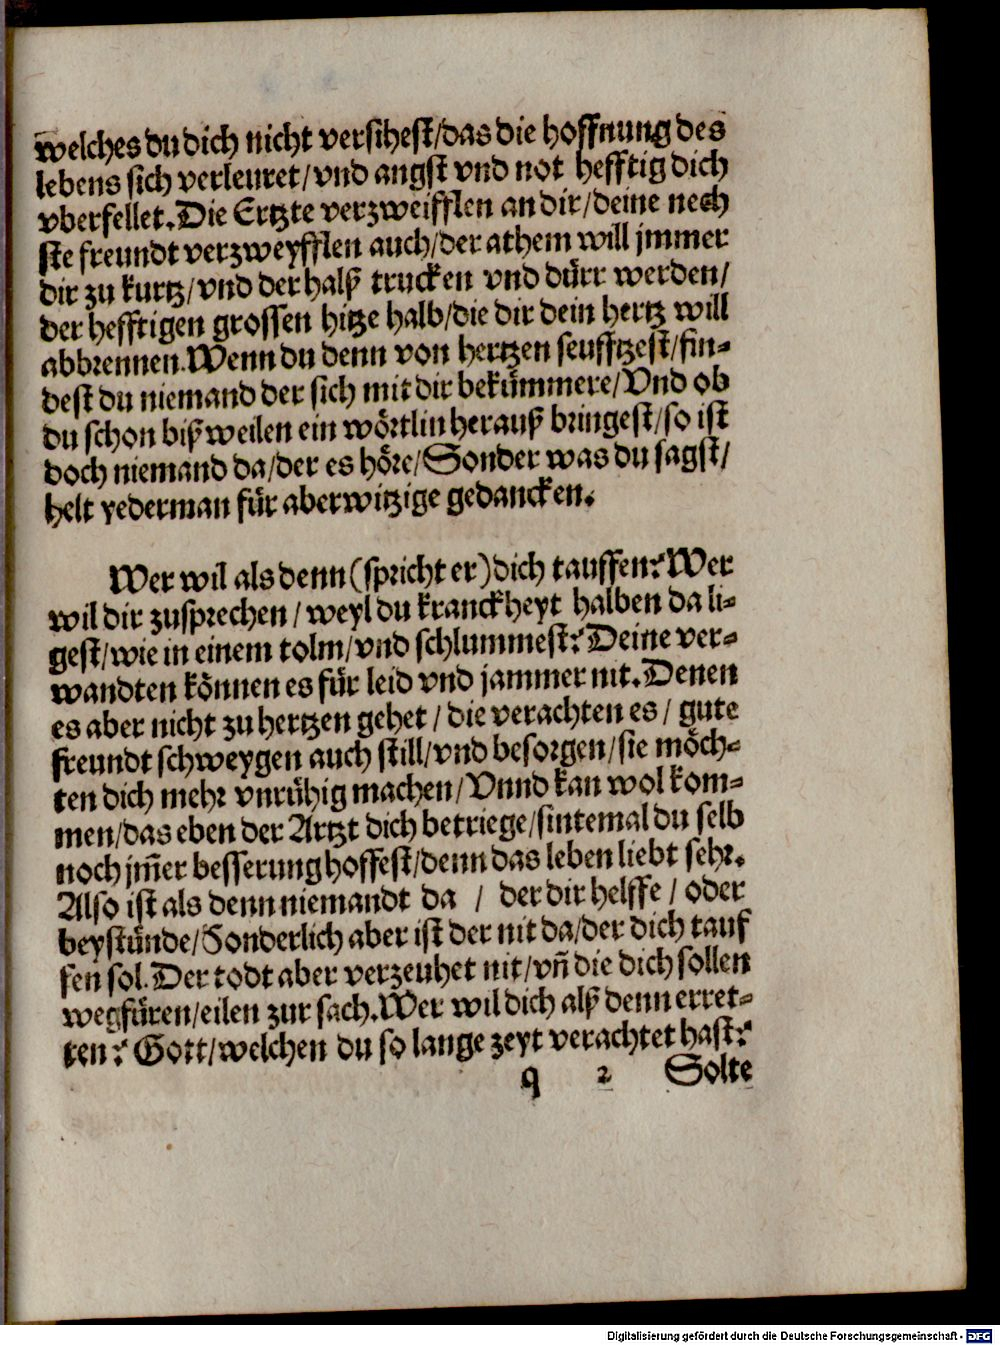 welches du dich nicht versihest/das die hoffnung des
lebens sich verleuret/vnd angst vnd not hefftig dich
vberfellet.Die Ertzte verzweifflen an dir/deine nech
ste freundt verzweyfflen auch/der athem will jmmer
dir zu kurtz/vnd der halß trucken vnd dürr werden/
der hefftigen grossen hitze halb/die dir dein hertz will
abbrennen.Wenn du denn von hertzen seufftzest/fin-
dest du niemand der sich mit dir bekümmere/Vnd ob
du schon bißweilen ein wörtlin herauß bringest/so ist
doch niemand da/der es höre/Sonder was du sagst/
helt yederman für aberwitzige gedancken.
Wer wil als denn(spricht er)dich tauffen?Wer
wil dir zusprechen/weyl du kranckheyt halben da li-
gest/wie in einem tolm/vnd schlummest?Deine ver-
wandten können es für leid vnd jammer nit.Denen
es aber nicht zu hertzen gehet/die verachten es/gute
freundt schweygen auch still/vnd besorgen/sie möch-
ten dich mehr vnrühig machen/Vnnd kan wol kom-
men/das eben der Artzt dich betriege/sintemal du selb
noch jm̃er besserung hoffest/denn das leben liebt sehr.
Also ist als denn niemandt da / der dir helffe/oder
beystünde/Sonderlich aber ist der nit da/der dich tauf
fen sol.Der todt aber verzeuhet nit/vñ die dich sollen
wegfüren/eilen zur sach.Wer wil dich alß denn erret-
ten?Gott/welchen du so lange zeyt verachtet hast?
q 2 Solte
Digitalisierung gefördert durch die Deutsche Forschungsgemeinschaft - DFG